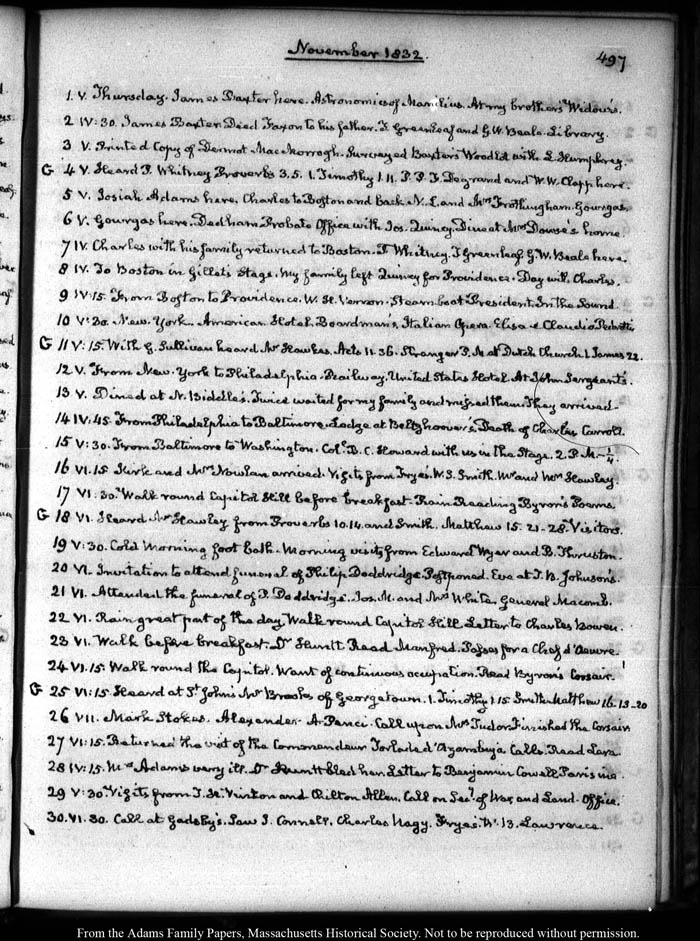 November 1832.
497
1 V. Thursday. James Baxter here. Astronomics of Manilius. At my brothers Widow's.
2 IV:30. James Baxter Deed Faxon to his father. T Greenleaf and G. W. Beale. Library.
3 V. Printed Copy of Dermot MacMorrogh. Surveyed Baxters Woodld with L. Humphrey.
G 4 V. Heard P. Whitney Proverbs 3.5. 1. Timothy 1.11. P. P. F. Degrand and W. W. Clapp here.
5 V. Josiah Adams here. Charles to Boston and back. N. L. and Mrs Frothingham. Gourgas.
6 V. Gourgas here. Dedham Probate Office with Jos. Quincy. Dine at Mrs Dowse's home.
7 IV. Charles with his family returned to Boston. P Whitney. T Greenleaf. G. W. Beale here.
8 IV. To Boston in Gillet's Stage. My family left Quincy for Providence. Day with Charles.
9 IV:15. From Boston to Providence. W. H. Vernon. Steam boat President. In the Sound.
10 V:30. New-York. American Hotel. Boardman's. Italian Opera. Elisa e Claudio. Pedrotti.
G 11 V:15. With G. Sullivan heard Mr Hawkes. Acts 11.36. Stranger P. M at Dutch Church. 1 James 22.
12 V. From New-York to Philadelphia. Railway. United States Hotel. At John Sergeant's.
13 V. Dined at N. Biddle's. Twice waited for my family and missed them. They arrived.
14 IV.45. From Philadelphia to Baltimore. Lodge at Beltzhoover's. Death of Charles Carroll.
15 V:30. From Baltimore to Washington. Coll. B. C. Howard with us in the Stage. 2 P. M. ¼.
16 VI.15 Kirk and Mrs Nowlan arrived. Visits from Fryes. W. S. Smith. Mr and Mrs Hawley.
17 VI.30. Walk round Capitol Hill before breakfast. Rain. Reading Byron's Poems.
G 18 VI. Heard Mr Hawley from Proverbs 10.14. and Smith. Matthew 15. 21-28. Visitors.
19 V:30. Cold Morning foot bath. Morning visits from Edward Wyer and B. Thruston.
20 VI. Invitation to attend funeral of Philip Doddridge. Postponed. Eve at T. B. Johnson's.
21 VI. Attended the funeral of P. Doddridge. Jos. M. and Mrs White. General Macomb.
22 VI. Rain great part of the day. Walk round Capitol Hill. Letter to Charles Bowen.
23 VI. Walk before breakfast. Dr Huntt. Read Manfred. Passes for a Chef d'Oeuvre.
24 VI.15. Walk round the Capitol. Want of continuous occupation. Read Byron's Corsair.
G 25 VI:15. Heard at St John's Mr Brooks of Georgetown. 1. Timothy 1.15 Smith Matthew 16.13-20
26 VII. Mark Stokes. Alexander. A. Panci. Call upon Mrs Tudor. Finished the Corsair
27 VI:15. Returned the visit of the Commandeur Torlade d'Azambuja. Calls. Read Lara
28 IV:15. Mrs Adams very ill. Dr Huntt bled her. Letter to Benjamin Cowell Paris me
29 V:30. Visits from J. H. Vinton and Chilton Allen. Call on Secy. of War, and Land-Office.
30. VI.30. Call at Gadsby's. Saw J. Connell. Charles Nagy. Fryes. W. B. Lawrence.
From the Adams Family Papers, Massachusetts Historical Society. Not to be reproduced without permission.